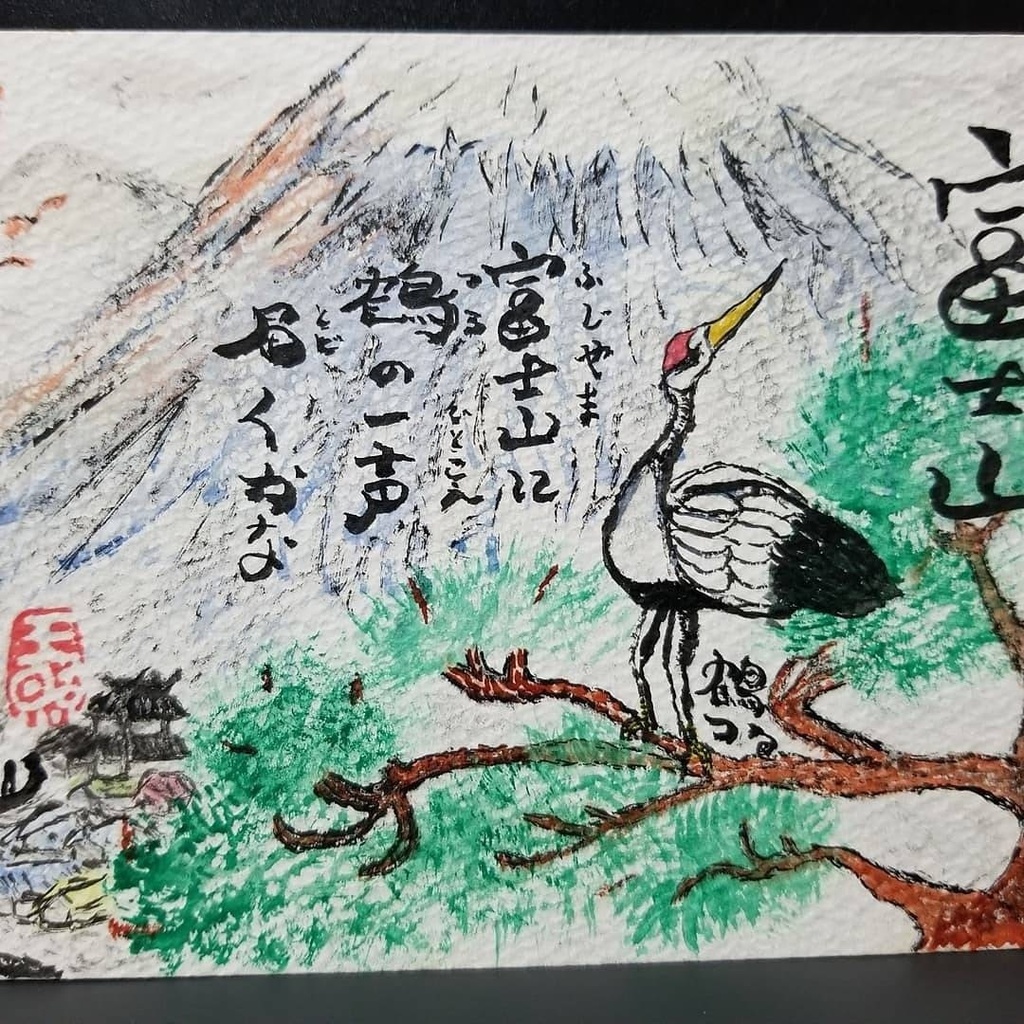 富士山
ふじやま
富士山に
つる　ひとこえ
鶴の一声
とど
届くかな
鶴
つる